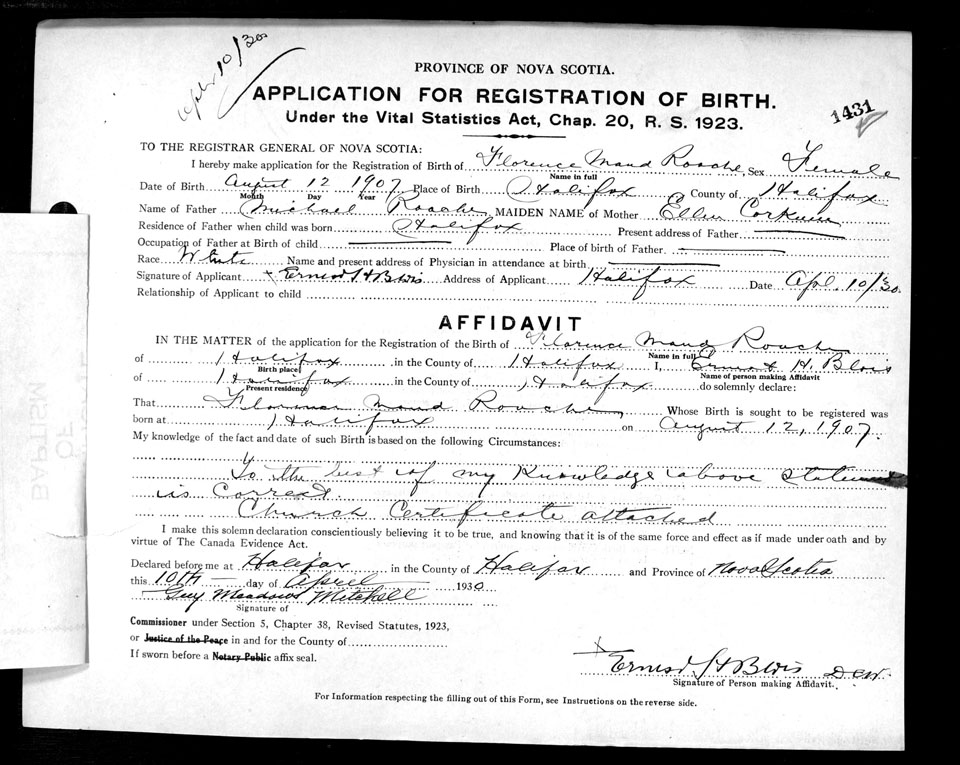 Apl 10/30
PROVINCE OF NOVA SCOTIA.
APPLICATION FOR REGISTRATION OF BIRTH.
Under the Vital Statistics Act, Chap. 20, R. S. 1923.
1431
TO THE REGISTRAR GENERAL OF NOVA SCOTIA:
I hereby make application for the Registration of Birth of Florence Maud Roache, Sex Female
Name in full
Date of Birth August 12 1907 Place of Birth Halifax County of Halifax
Month Day Year
Name of Father Michael Roache MAIDEN NAME of Mother Ellen
Residence of Father when child was born Halifax Present address of Father
Occupation of Father at Birth of child Place of birth of Father
Race White Name and present address of Physician in attendance at birth
Signature of Applicant Ernest H Blois Address of Applicant Halifax Date Apl. 10/30.
Relationship of Applicant to child
AFFIDAVIT
IN THE MATTER of the application for the Registration of the Birth of Florence Maud Roache
Name in full
of Halifax in the County of Halifax I, Ernest H. Blois
Birth place Name of person making Affidavit
of Halifax in the County of Halifax do solemnly declare:
Present residence
That Florence Maud Roache Whose Birth is sought to be registered was
born at Halifax on August 12, 1907.
My knowledge of the fact and date of such Birth is based on the following Circumstances:
To the best of my Knowledge above statement
is correct.
Church Certificate attached
I make this solemn declaration conscientiously believing it to be true, and knowing that it is of the same force and effect as if made under oath and by
virtue of The Canada Evidence Act.
Declared before me at Halifax in the County of Halifax and Province of Nova Scotia
this 10th day of April 1930
Guy Meadows Mitchell
Signature of
Commissioner under Section 5, Chapter 38, Revised Statutes, 1923,
or Justice of the Peace in and for the County of
If sworn before a Notary Public affix seal.
Ernest H Blois
Signature of Person making Affidavit.
For Information respecting the filling out of this Form, see Instructions on the reverse side.